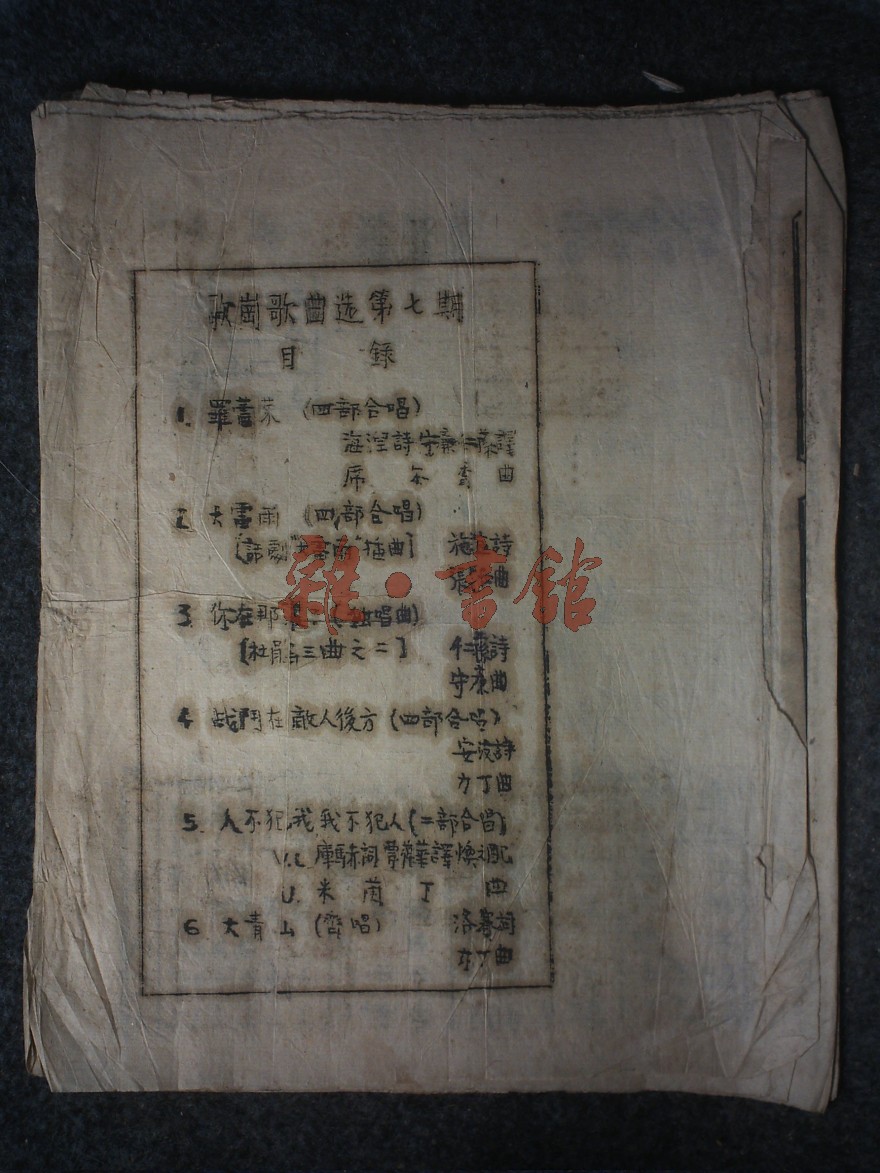 歌崗歌曲选第七期
目 錄
1. 羅蕾萊 (四部合唱)
海涅詩 守廉仁蓀譯
席 尔 查 曲
2. 大雷雨 (四部合唱)
[話劇"大雷雨"插曲] 詩
曲
3. 你在那里 (独唱曲)
[杜鹃鸟三曲之二] 仁蓀詩
守廉曲
4 战鬥在敵人後方 (四部合唱)
安波詩
力丁曲
5. 人不犯我我不犯人 (二部合唱)
V.L. 庫馬赤詞 譯 煥之配
U. 米 蘭 丁 曲
6 大青山 (齊唱) 洛賽詞
丁曲
雜·書館